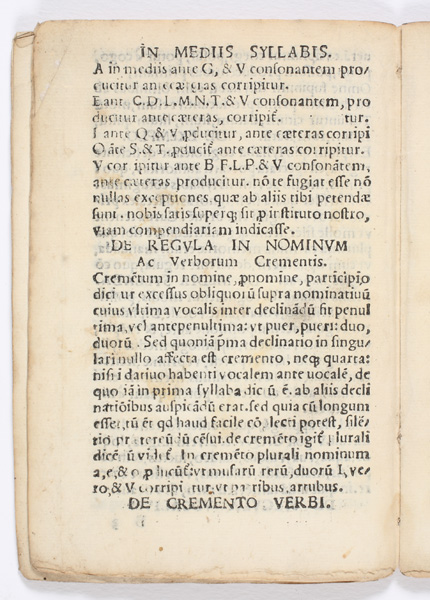 IN MEDIIS SYLLABIS.
A in mediis ante G, & V consonantem pro/
ducitur ante cæteras corripitur.
E ante C.D.L.M.N.T.& V consonantem, pro
ducitur ante cæteras, corripit̃. tur.
I ante Q & V ꝓducitur, ante cæteras corripi
O ãte S.& T. ꝓducit̃ ante cæteras corripitur.
V cor ipitur ante B F.L.P.& V consonãtem,
ante cæteras producitur. nõ te fugiat esse nõ
nullas exceptiones, quæ ab aliis tibi petendæ
sunt. nobis satis superqꝫ sit, ꝓ instituto nostro,
viam compendiariam indicasse.
DE REGVLA IN NOMINVM
Ac Verborum Crementis.
Cremẽtum in nomine, ꝓnomine, participio
dicitur excessus obliquorũ supra nominatiuũ
cuius vltima vocalis inter declinãdũ fit penul
tima, vel antepenultima: vt puer, pueri: duo,
duorũ. Sed quoniã p̃ma declinatio in singu/
lari nullo affecta est cremento, neqꝫ quarta:
nisi i datiuo habenti vocalem ante uocalẽ, de
quo iã in prima syllaba dictũ ẽ. ab aliis decli
nationibus auspicãdũ erat. sed quia cũ longum
esset, tũ ẽt qd haud facile cõ, lecti potest, silẽ/
tio prætereũdũ cẽsui. de cremẽto igit̃ plurali
dicẽ ũ videt̃. In cremẽto plurali nominum
a, e, & o, ꝓ lucũt̃. vt musarũ rerũ, duorũ I, ve/
ro, & V corripi tur. vt partibus, artubus.
DE CREMENTO VERBI.